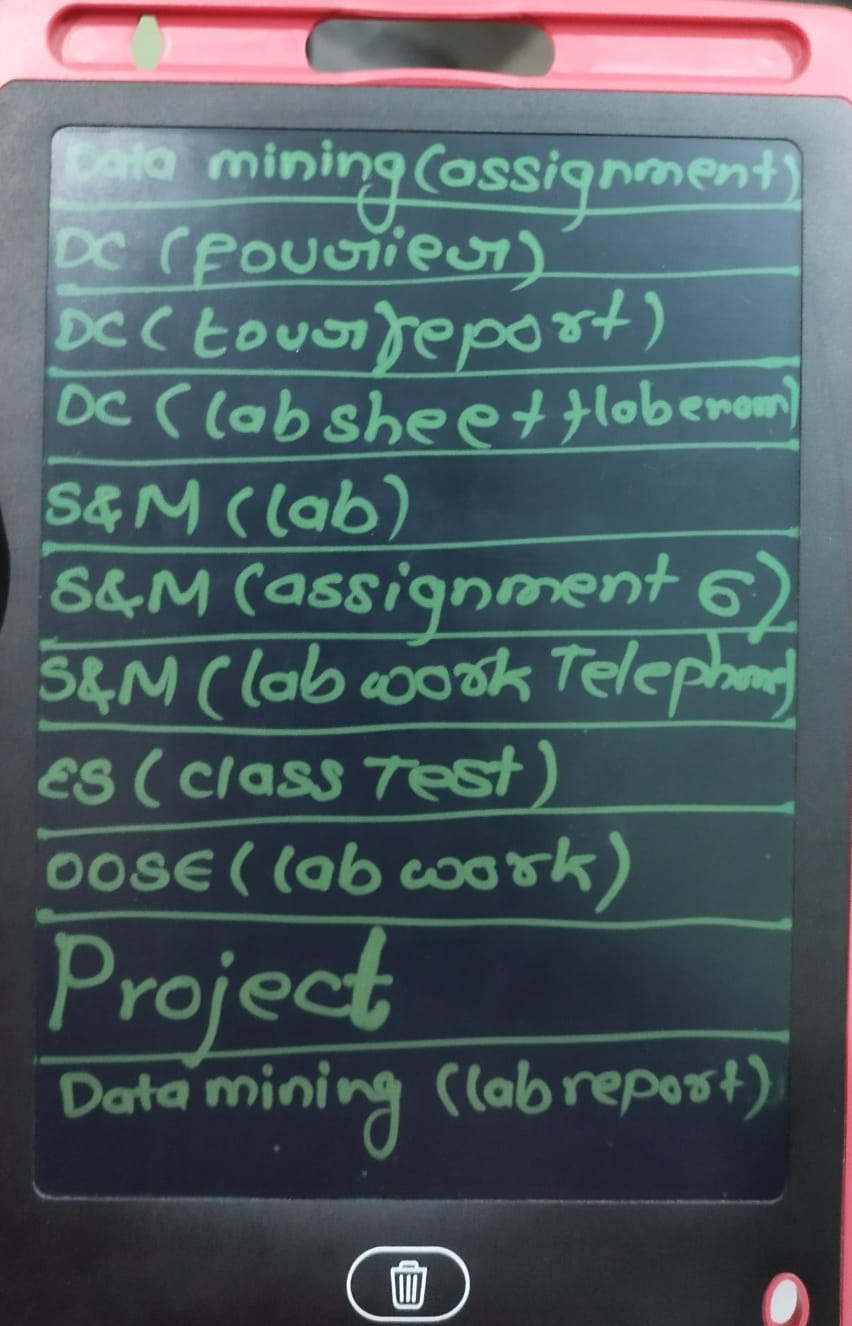 Data mining (assignment)
DC (fourier)
DC (tour report)
DC (lab sheet + lab exam)
S&M (lab)
S&M (assignment 6)
S&M (lab work Telephone)
ES (class Test)
OOSE (lab work)
Project
Data mining (lab report)